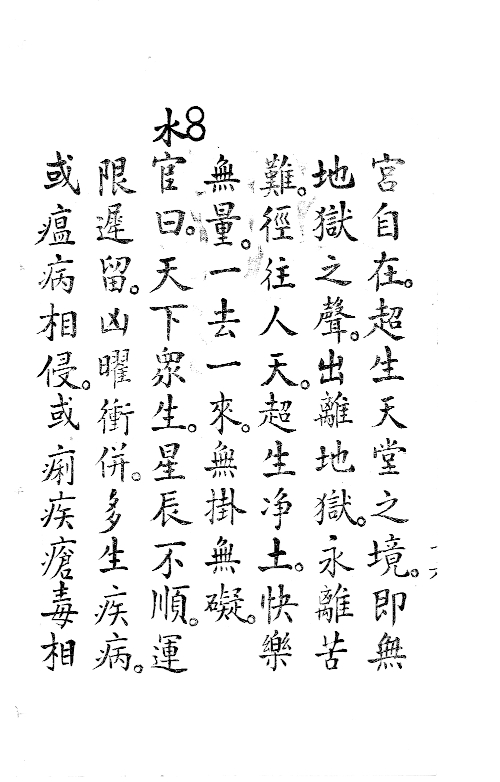 宮自在。超生天堂之境。即無
地獄之聲。出離地獄。永離苦
難。徑往人天。超生净土。快樂
無量。一去一來。無掛無礙。
水官曰。天下眾生。星辰不順。運
限遲留。凶曜衝併。多生疾病。
或瘟病相侵。或痢疾瘡毒相
8
十六